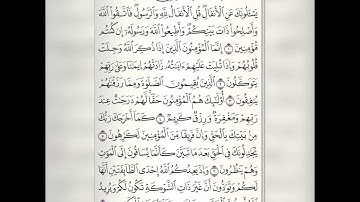 يَسْـَٔلُونَكَ عَنِ ٱلْأَنفَالِ قُلِ ٱلْأَنفَالُ لِلَّهِ وَٱلرَّسُولِ فَٱتَّقُوا۟ ٱللَّهَ
وَأَصْلِحُوا۟ ذَاتَ بَيْنِكُمْ وَأَطِيعُوا۟ ٱللَّهَ وَرَسُولَهُۥٓ إِن كُنتُم
مُّؤْمِنِينَ ۝١ إِنَّمَا ٱلْمُؤْمِنُونَ ٱلَّذِينَ إِذَا ذُكِرَ ٱللَّهُ وَجِلَتْ
قُلُوبُهُمْ وَإِذَا تُلِيَتْ عَلَيْهِمْ ءَايَـٰتُهُۥ زَادَتْهُمْ إِيمَـٰنًا وَعَلَىٰ رَبِّهِمْ
يَتَوَكَّلُونَ ۝٢ ٱلَّذِينَ يُقِيمُونَ ٱلصَّلَوٰةَ وَمِمَّا رَزَقْنَـٰهُمْ
يُنفِقُونَ ۝٣ أُو۟لَـٰٓئِكَ هُمُ ٱلْمُؤْمِنُونَ حَقًّا لَّهُمْ دَرَجَـٰتٌ عِندَ
رَبِّهِمْ وَمَغْفِرَةٌ وَرِزْقٌ كَرِيمٌ ۝٤ كَمَآ أَخْرَجَكَ رَبُّكَ
مِنۢ بَيْتِكَ بِٱلْحَقِّ وَإِنَّ فَرِيقًا مِّنَ ٱلْمُؤْمِنِينَ لَكَـٰرِهُونَ ۝٥
يُجَـٰدِلُونَكَ فِى ٱلْحَقِّ بَعْدَ مَا تَبَيَّنَ كَأَنَّمَا يُسَاقُونَ إِلَى ٱلْمَوْتِ
وَهُمْ يَنظُرُونَ ۝٦ وَإِذْ يَعِدُكُمُ ٱللَّهُ إِحْدَى ٱلطَّآئِفَتَيْنِ أَنَّهَا
لَكُمْ وَتَوَدُّونَ أَنَّ غَيْرَ ذَاتِ ٱلشَّوْكَةِ تَكُونُ لَكُمْ وَيُرِيدُ